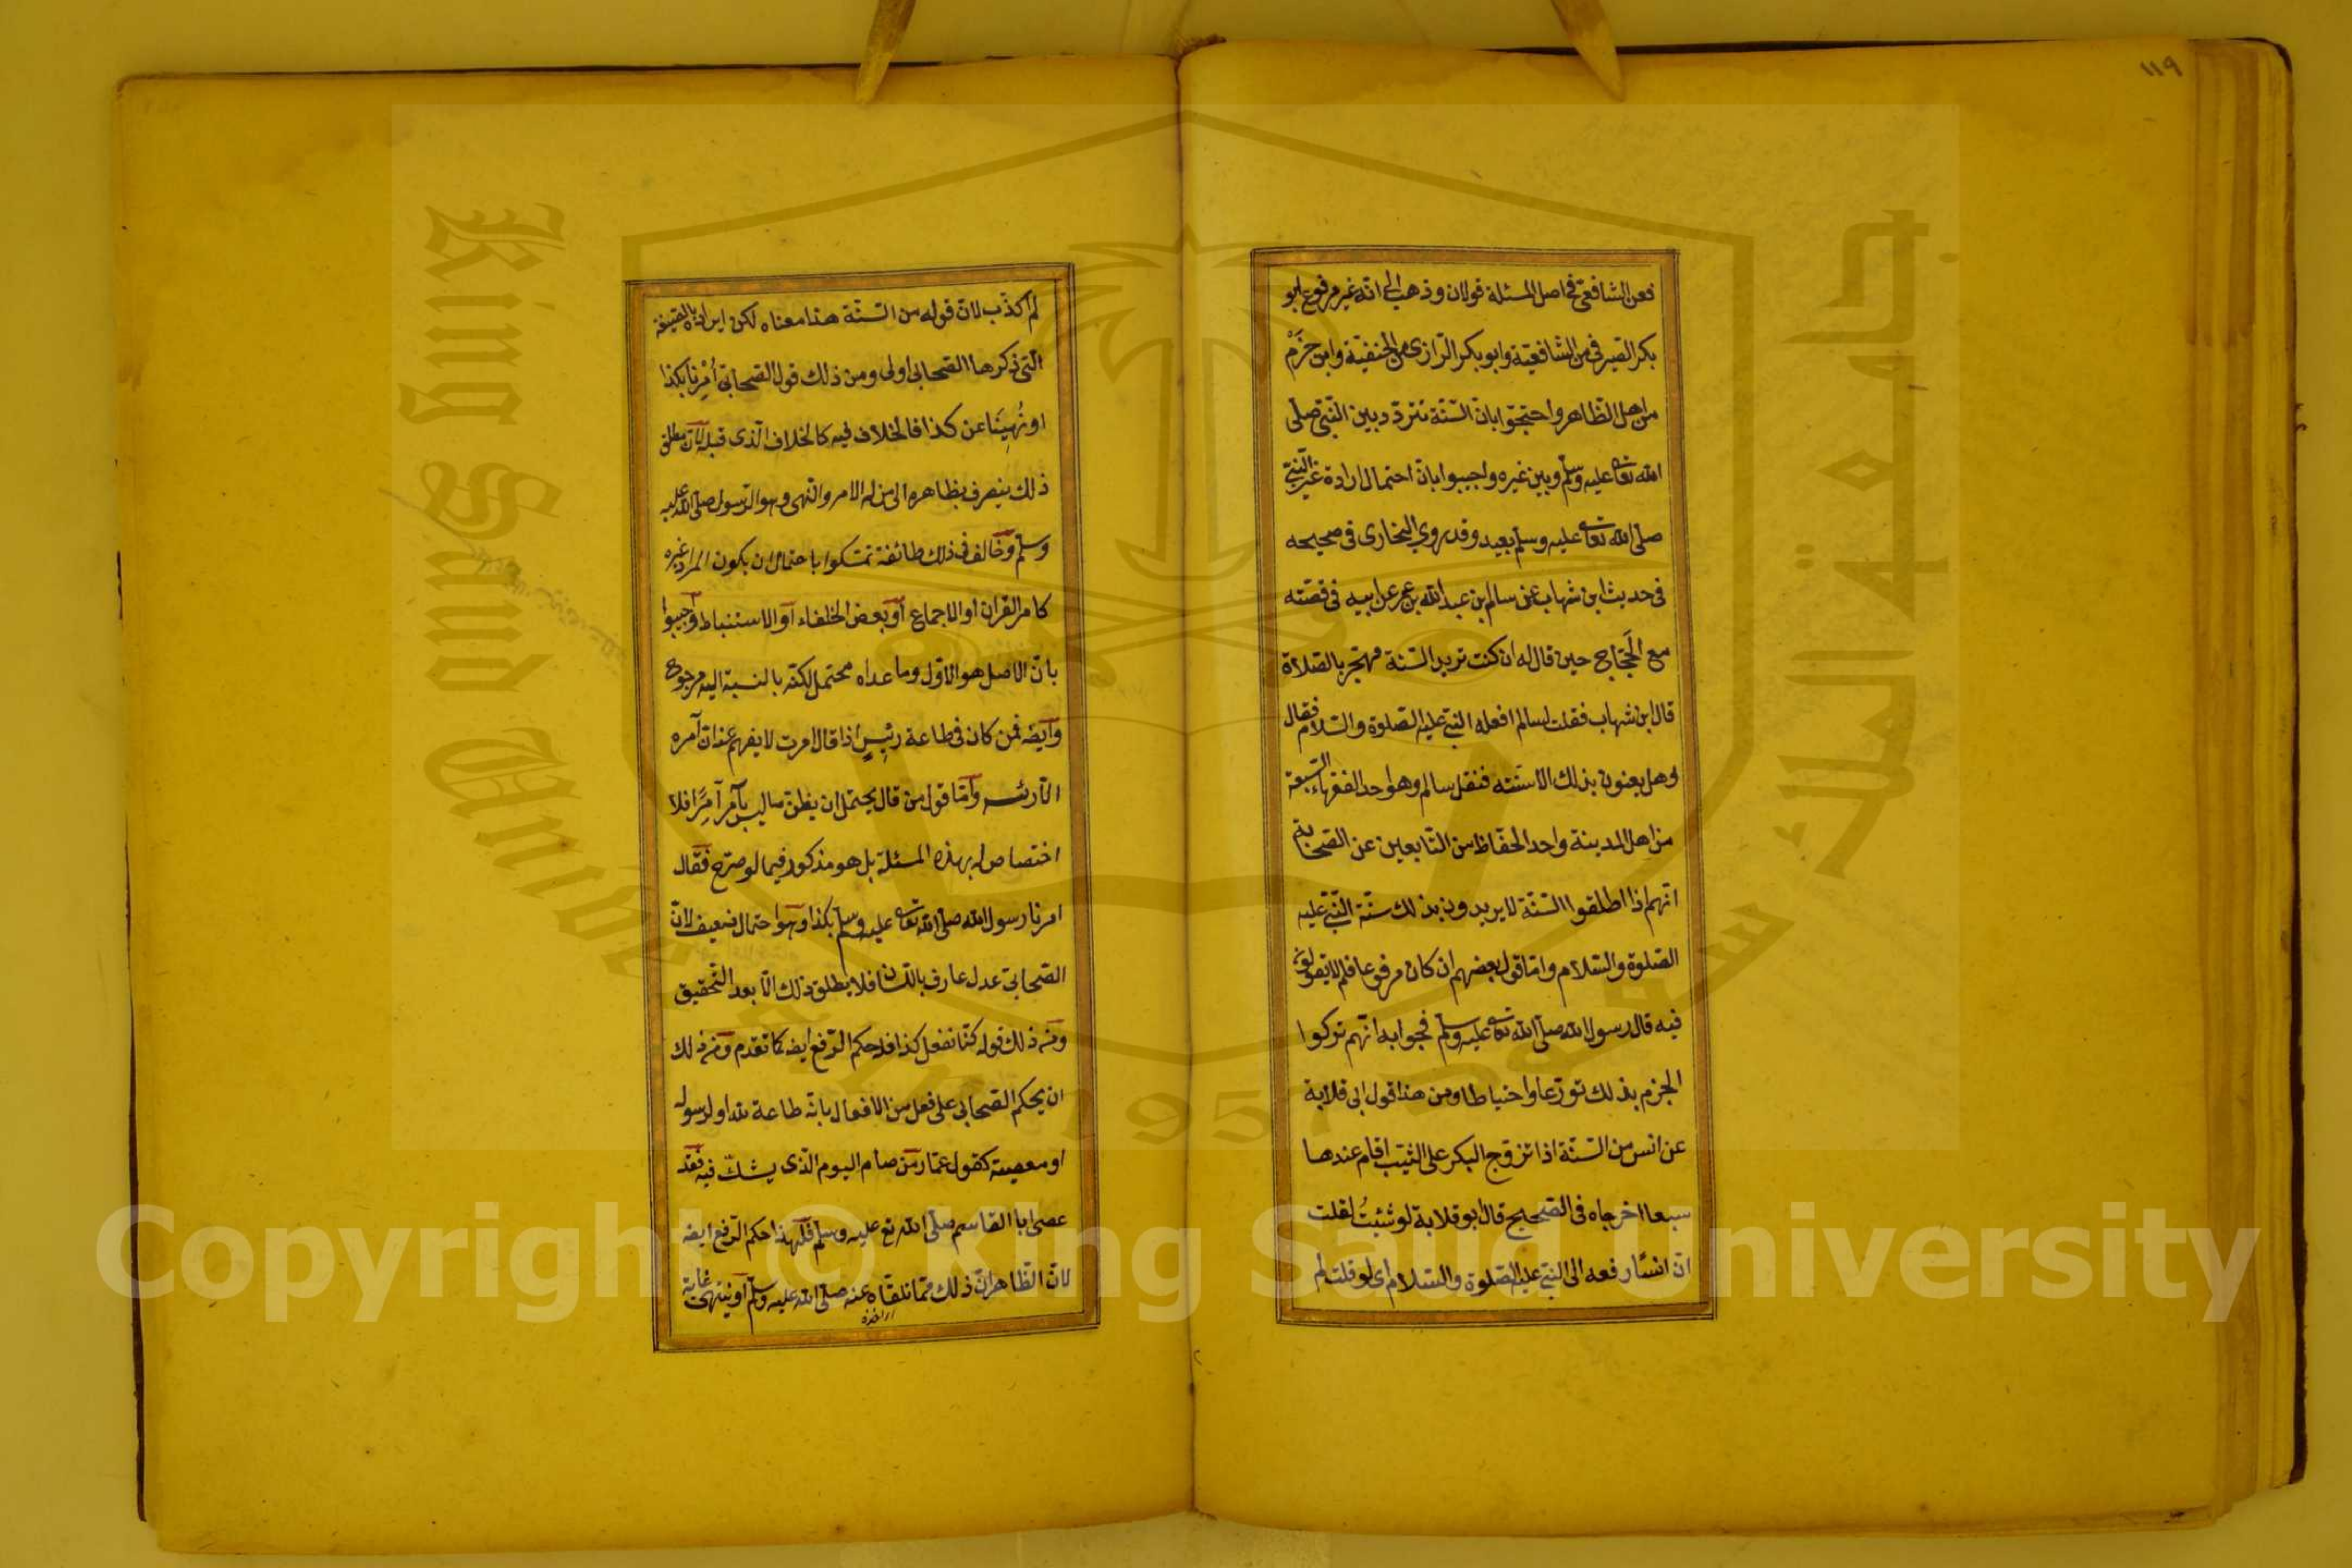 ١١٩
فعن الشافعي في اصل المسئلة قولان وذهب الى انه غير مرفوع ابو
بكر الصيرفي من الشافعيّة وابو بكر الرّازى من الحنفيّة وابن حَزْم
من اهل الظّاهر واحتجّوا بانّ السّنّة تتردّد بين النّبيّ صلّى
الله تعا عليه وسلّم وبين غيره واجيبوا بانّ احتمال ارادة غير النّبيّ
صلّى الله تعا عليه وسلّم بعيد وقد روي البخارى فى صحيحه
فى حديث ابن شهاب عن سالم ابن عبد الله بن عمر عن ابيه فى قصّته
مع الحَجّاج حين قال له ان كنت تريد السّنة فهجّر بالصّلاة
قال ابن شهاب فقلت لسالم افعله النّبيّ عليه الصّلوة والسّلام فقال
وهل يعنون بذلك الا سنّته فنقل سالم وهو احد الفقهاء السّبعة
من اهل المدينة واحد الحفّاظ من التّابعين عن الصّحابة
انّهم اذا اطلقوا السّنّة لا يريدون بذلك سنّة النّبيّ عليه
الصّلوة والسّلام وامّا قول بعضهم ان كان مرفوعا فلم لا يقولون
فيه قال رسول الله صلّى الله تعا عليه وسلّم فجوابه انّهم تركوا
الجزم بذلك تورّعا واحتياطا ومن هذا قول ابى قلابة
عن انس من السّنّة اذا تزوّج البكر على الثّيّب اقام عندها
سبعا اخرجاه فى الصّحيح قال ابو قلابة لو شئتُ لقلت
انّ انسًا رفعه الى النّبيّ عليه الصّلوة والسّلام اى لو قلت لم
لم اكذب لانّ قوله من السّنّة هذا معناه لكن ايراده بالصّيغة
الّتى ذكرها الصّحابى اولى ومن ذلك قول الصّحابيّ أُمِرْنا بكذا
او نُهِينَا عن كذا فالخلاف فيه كالخلاف الّذى قبله لانّ مطلق
ذلك ينصرف بظاهره الى من له الامر والنّهى وهو الرّسول صلّى الله عليه
وسلّم وخالف فى ذلك طائفة تمسّكوا باحتمال ان يكون المراد غيره
كامر القران او الاجماع او بعض الخلفاء او الاستنباط واجيبوا
بانّ الاصل هو الاوّل وما عداه محتمل لكنّه بالنسبة اليه مرجوح
وايضه فمن كان فى طاعة رئيسٍ اذا قال امرت لا يفهم عنه انّ آمره
الّا رئيسه وامّا قول من قال يحتمل ان يظنّ ما ليس بآمر آمرًا فلا
اختصاص له بهذه المسئلة بل هو مذكور فيما لو صرّح فقال
امرنا رسول الله صلّى الله تعا عليه وسلّم بكذا وهو احتمال ضعيف لانّ
الصّحابيّ عدل عارف باللّسان فلا يطلق ذلك الّا بعد التّحقيق
ومن ذلك قوله كنّا نفعل كذا فله حكم الرّفع ايضه كما تقدم ومن ذلك
ان يحكم الصّحابى على فعل من الافعال بانّه طاعة لله او لرسوله
او معصية كقول عمّار من صام اليوم الّذى يشكّ فيه فقد
عصى ابا القاسم صلّى الله تع عليه وسلّم فلهذا حكم الرّفع ايضه
لانّ الظّاهر انّ ذلك ممّا تلقّاه عنه صلّى الله عليه وسلّم او ينتهى غاية
King Saud University
جامعة الملك سعود
1957
Copyright © King Saud University